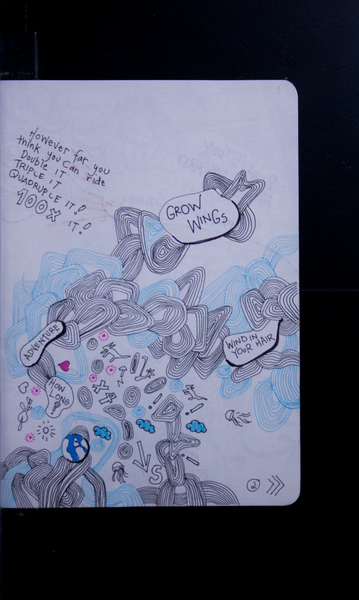 However far you
think you can ride
Double IT
TRIPLE IT
QUADRUPLE IT!
100x IT!
GROW
WINGS
ADVENTURE
WIND IN
YOUR HAIR
HOW
LONG
N
S